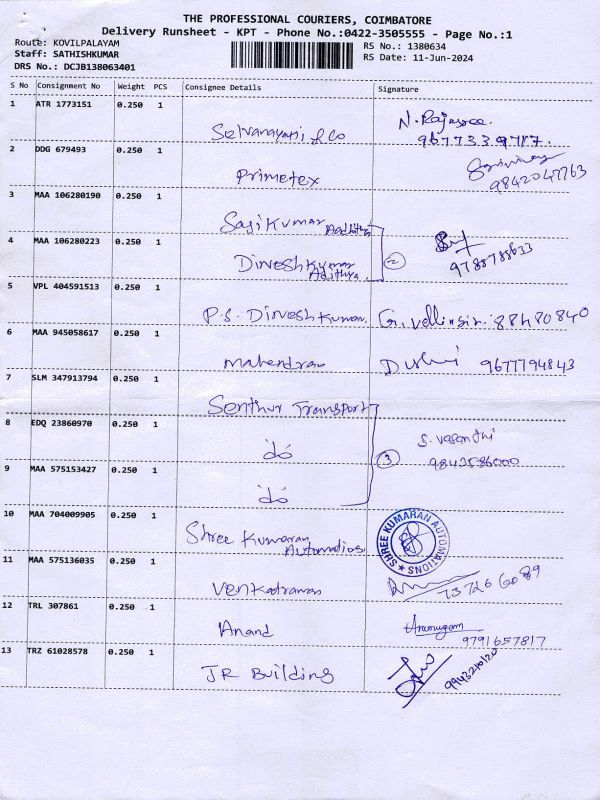 THE PROFESSIONAL COURIERS, COIMBATORE
Delivery Runsheet - KPT - Phone No.:0422-3505555 - Page No.:1
Route: KOVILPALAYAM
Staff: SATHISHKUMAR
DRS No.: DCJB138063401
RS No.: 1380634
RS Date: 11-Jun-2024
S No Consignment No Weight PCS Consignee Details Signature
1 ATR 1773151 0.250 1 Selvanayaki & Co N. Rajasree
9677339787.
2 DDG 679493 0.250 1 Primetex 9842047763
3 MAA 106280190 0.250 1 Sasikumar Aadithya
4 MAA 106280223 0.250 1 Dinesh Kumar Adithya. 2 9788788633
5 VPL 404591513 0.250 1 P.S. Dinesh Kumar. G. 88480840
6 MAA 945058617 0.250 1 Mahendran 9677794843
7 SLM 347913794 0.250 1 Senthur Transport
8 EDQ 23860970 0.250 1 do S. Vasanthi
9 MAA 575153427 0.250 1 do 3 9843586000
10 MAA 704009905 0.250 1 Shree Kumaran Automations SHREE KUMARAN AUTOMATIONS
11 MAA 575136035 0.250 1 Venkatraman
12 TRL 307861 0.250 1 Anand Arumugam
9791657817
13 TRZ 61028578 0.250 1 JR Building 9943210120